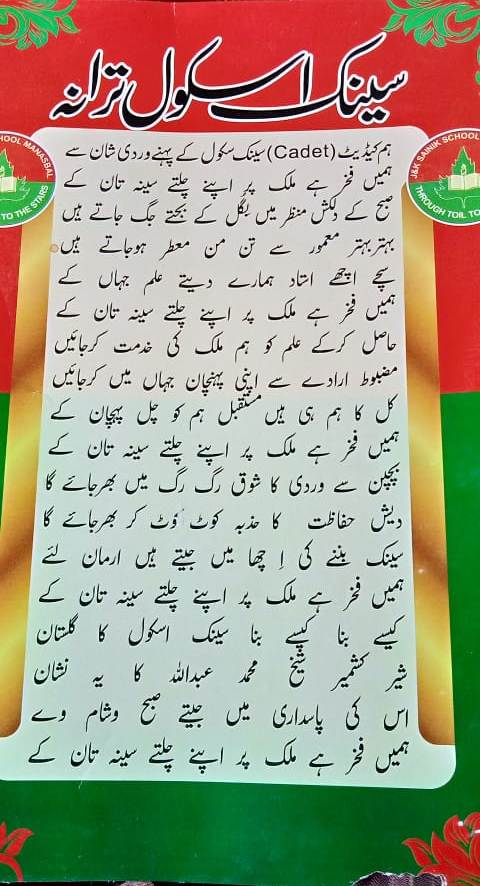 سینک اسکول ترانہ
HOOL MANASBAL
TO THE STARS
J&K SAINIK SCHOOL
THROUGH TOIL TO
ہم کیڈیٹ (Cadet) سینک سکول کے پہنے وردی شان سے
ہمیں فخر ہے ملک پر اپنے چلتے سینہ تان کے
صبح کے دلکش منظر میں بگل کے بجتے جگ جاتے ہیں
بہتر بہتر معمور سے تن من معطر ہوجاتے ہیں
سچے اچھے استاد ہمارے دیتے علم جہاں کے
ہمیں فخر ہے ملک پر اپنے چلتے سینہ تان کے
حاصل کرکے علم کو ہم ملک کی خدمت کرجائیں
مضبوط ارادے سے اپنی پہنچان جہاں میں کرجائیں
کل کا ہم ہی ہیں مستقبل ہم کو چل پہچان کے
ہمیں فخر ہے ملک پر اپنے چلتے سینہ تان کے
بچپن سے وردی کا شوق رگ رگ میں بھرجائے گا
دیش حفاظت کا جذبہ کوٹ کوٹ کر بھرجائے گا
سینک بننے کی اِ چھا میں جیتے ہیں ارمان لئے
ہمیں فخر ہے ملک پر اپنے چلتے سینہ تان کے
کیسے بنا کیسے بنا سینک اسکول کا گلستان
شیر کشمیر شیخ محمد عبداللہ کا یہ نشان
اس کی پاسداری میں جیتے صبح وشام وے
ہمیں فخر ہے ملک پر اپنے چلتے سینہ تان کے